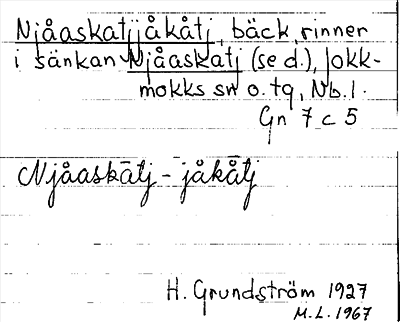 Njåaskatjjåkåtj, bäck, rinner
i sänkan Njåaskatj (se d.), Jokk-
mokks sn o. tg, Nb. l.
Gn 7 c 5
Njåaskātj - jåkåtj
H. Grundström 1927
M.L. 1967